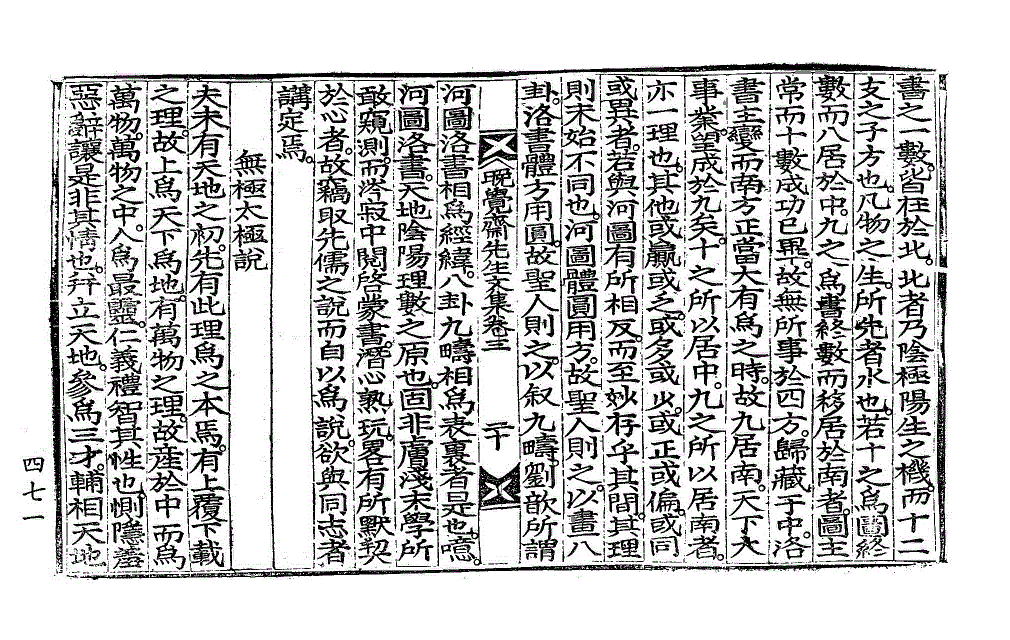 書之一數。皆在於北。北者乃陰極陽生之機。而十二
支之子方也。凡物之生。所先者水也。若十之爲圖終
數而八居於中。九之爲書終數而移居於南者。圖主
常而十數成功已畢。故無所事於四方。歸藏于中。洛
書主變而南方正當大有爲之時。故九居南。天下大
事業。望成於九矣。十之所以居中。九之所以居南者。
亦一理也。其他或贏或乏。或多或少。或正或偏。或同
或異者。若與河圖有所相反。而至妙存乎其間。其理
則未始不同也。河圖體圓用方。故聖人則之。以畫八
卦。洛書體方用圓。故聖人則之。以叙九疇。劉歆所謂
晩覺齋先生文集卷之三　二十
河圖洛書相爲經緯。八卦九疇相爲表裏者是也。噫。
河圖洛書。天地陰陽理數之原也。固非膚淺末學所
敢窺測。而涔寂中閱啓蒙書。潛心熟玩。畧有所默契
於心者。故竊取先儒之說而自以爲說。欲與同志者
講定焉。
無極太極說
夫未有天地之初。先有此理爲之本焉。有上覆下載
之理。故上爲天下爲地。有萬物之理。故産於中而爲
萬物。萬物之中。人爲最靈。仁義禮智其性也。惻隱羞
惡辭讓是非其情也。幷立天地。參爲三才。輔相天地
四七一